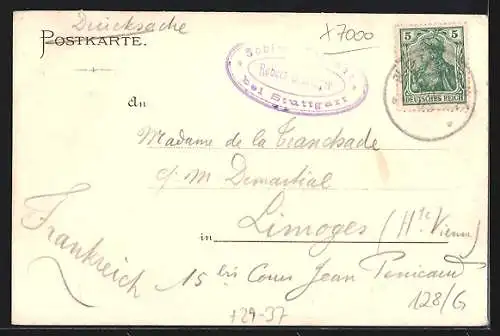 Drucksache
POSTKARTE.
X7000
Robert
bei Stuttgart
5 5
DEUTSCHES REICH
An
Madame de la Tranchade
c/ M Demartial
in Limoges (Hte Vienne)
Frankreich
15 bis Cours Jean Penicaud
128/G
+29-37